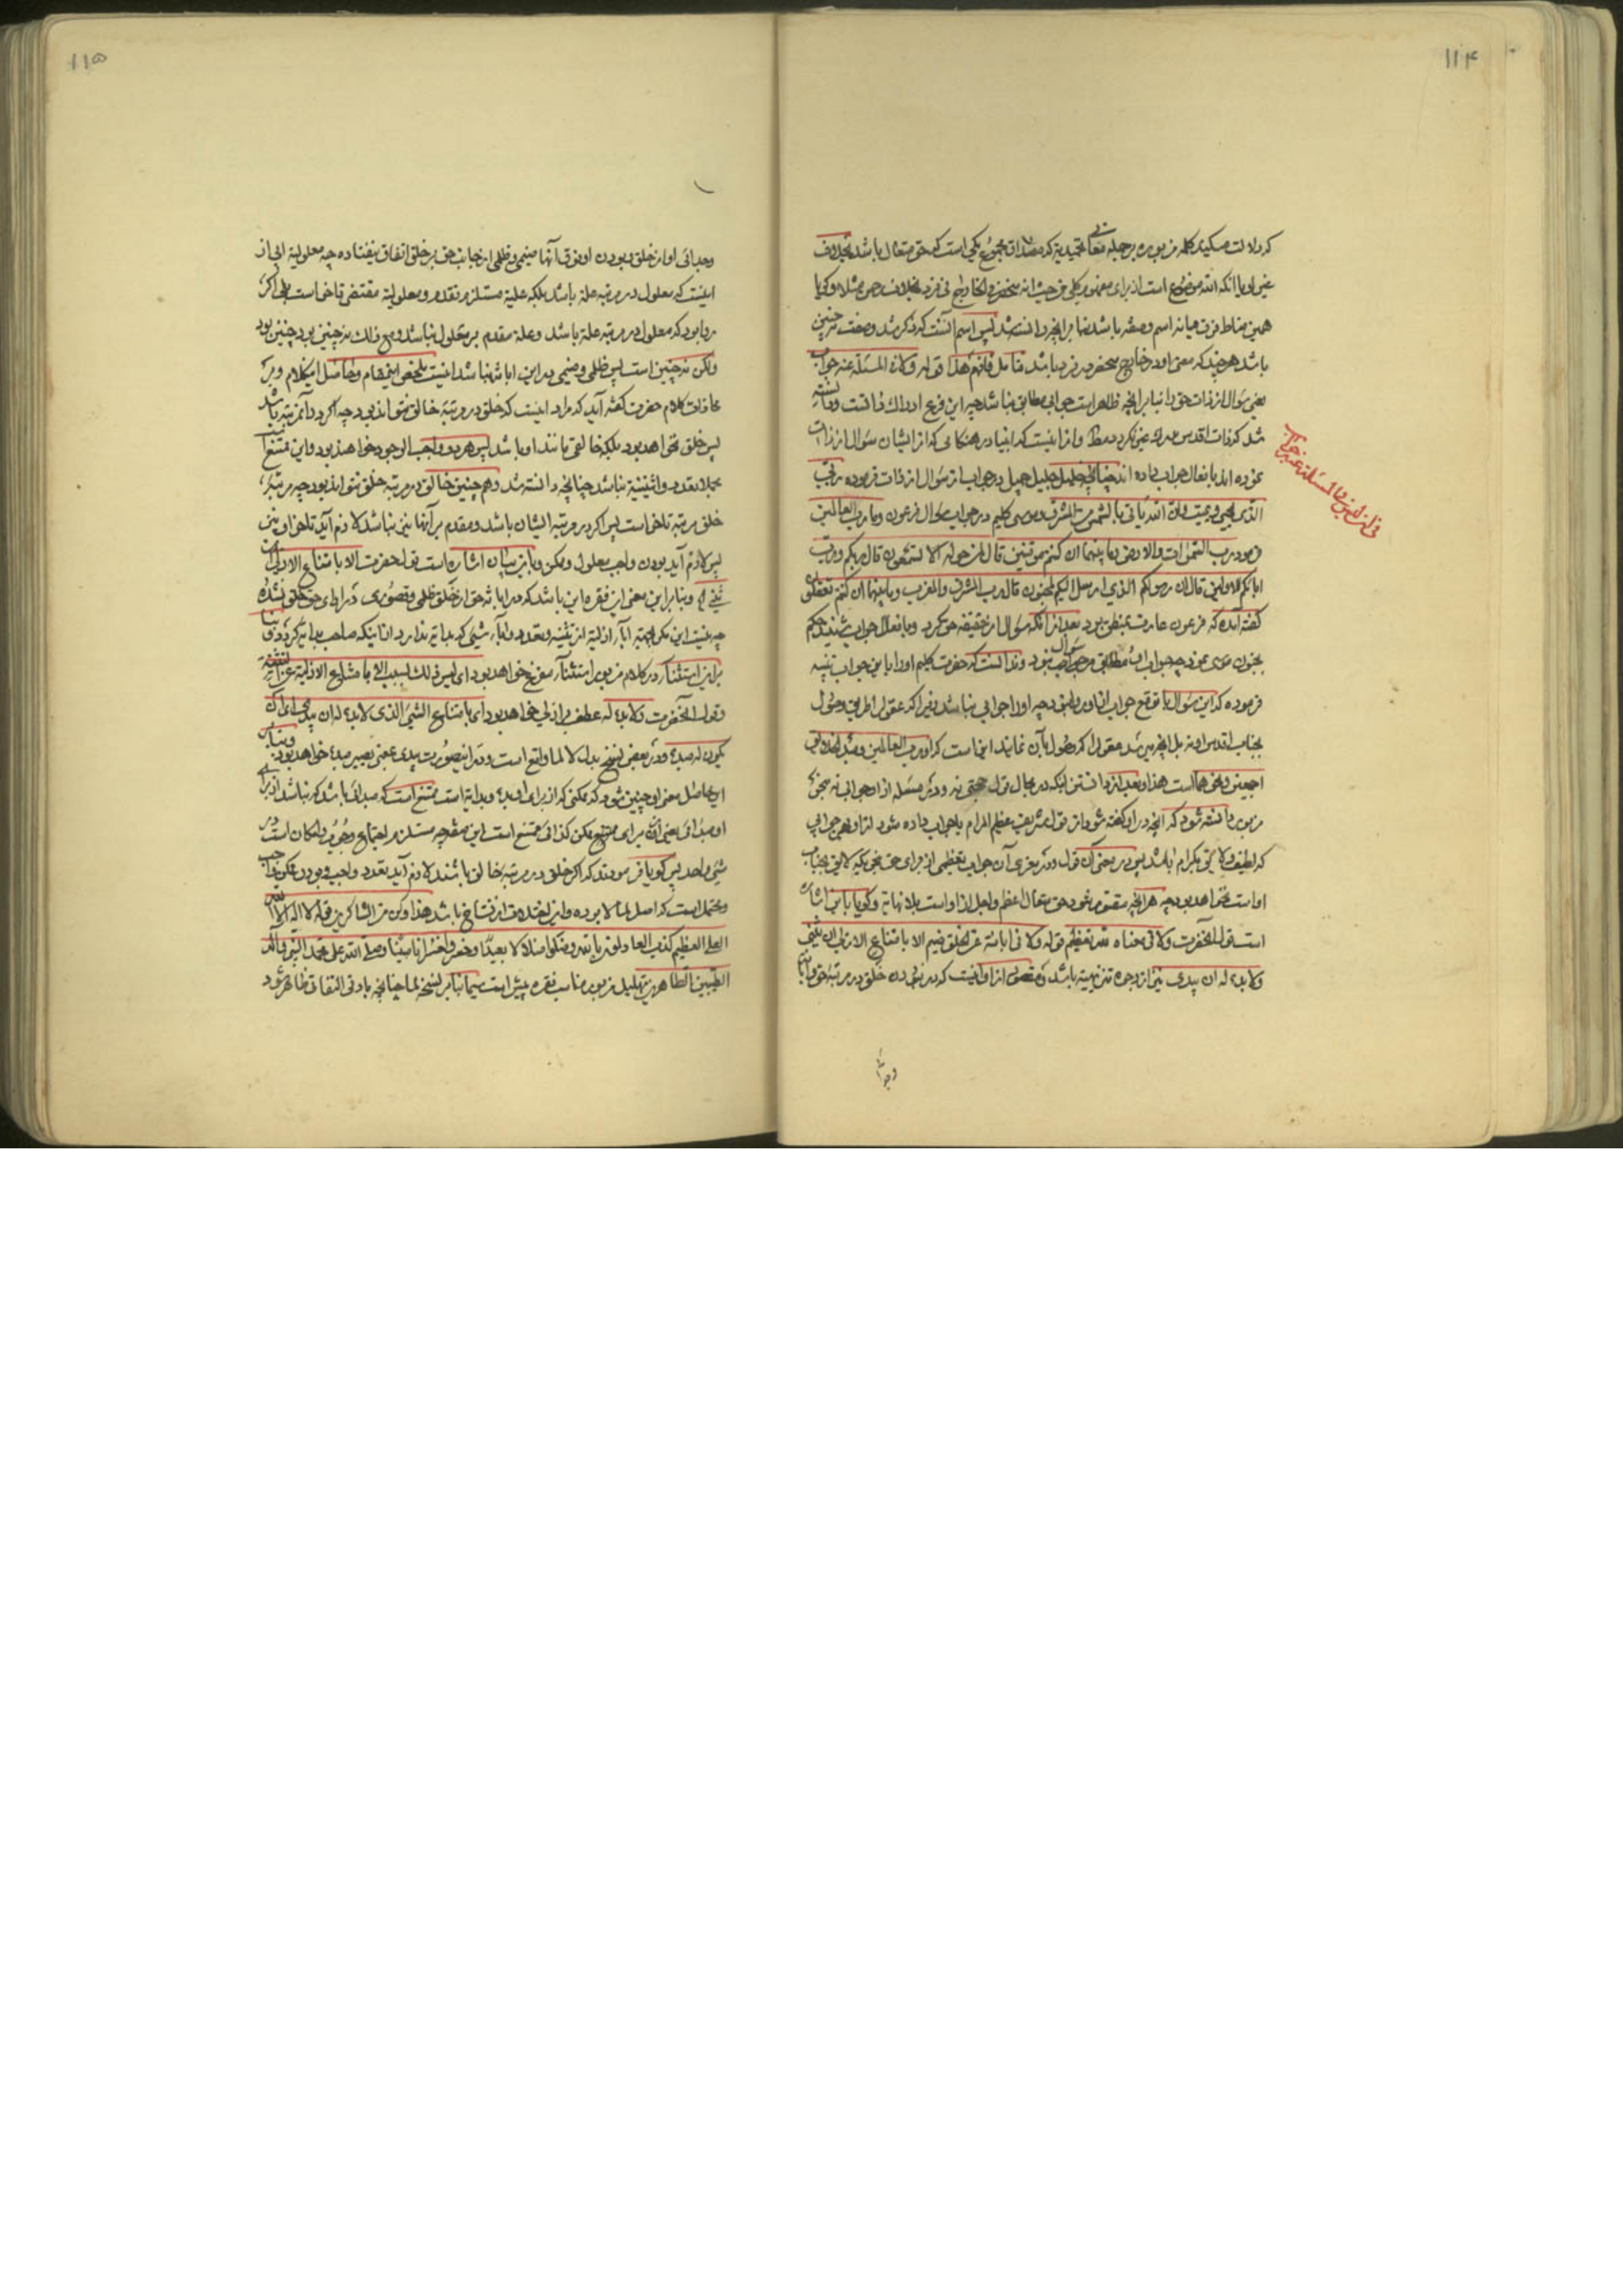 ۱۱۴
که دلالت میکند کلمه مزبوره بر جمله معانی تمجیدیة که مصداق مجموع یکی است که حق متعال باشد بخلاف
غیر او یا آنکه الله موضوع است از برای مفهوم کلی من حیث انه منحصر فی الخارج فی فرد بخلاف رحمن مثلا و گویا
همین مناط فرق میانه اسم و صفه باشد بنا بر آنچه دانسته شد پس اسم آنست که ذکر شد و صفت نه چنین
باشد هر چند که معنی او در خارج منحصر در فرد باشد فتأمل فافهم هذا قوله و لا فی المسئلة عنه جواب
یعنی سؤال از ذات حق را بنا بر آنچه ظاهر است جوابی مطابق نباشد چه این فرع ادراک ذاتست و دانسته
شد که ذات اقدس مدرك غیر نگردد و از اینست که انبیا در هنگامی که از ایشان سؤال از ذات
نموده اند بافعال جواب داده اند چنانکه خلیل جلیل در جواب از سؤال از ذات فرموده ربی
الذی یحیی و یمیت فان الله یأتی بالشمس من المشرق و موسی کلیم در جواب سؤال فرعون و ما رب العالمین
فرمود رب السموات و الارض و ما بینهما ان کنتم موقنین قال لمن حوله الا تستمعون قال ربکم و رب
ابائکم الاولین قال ان رسولکم الذی ارسل الیکم لمجنون قال رب المشرق و المغرب و ما بینهما ان کنتم تعقلون
گفته آمده که فرعون عارف بمنطق بود بعد از آنکه سؤال از حقیقه حق کرد و بافعال جواب شنید حکم
بجنون موسی نمود چه جواب او مطابق سؤال نبود و ندانست که حضرت کلیم او را باین جواب تنبیه
فرموده که این سؤال را توقع جواب نباشد زیرا که عقول را طریق وصول
بجناب اقدس او نه بل آنچه میرسد عقول را که وصول بآن نمایند این است که او رب العالمین
اجمعین و نحو هما است هذا و بعد از دانستن اینکه در مجال قول حقی نه و در مسئله از او جوابی نه
مزبور دانسته شود که آنچه در او گفته شود از قول شریف عظیم المرام یا جواب داده شود از او بهر جوابی
که لطیف و لایق بکرام باشد پس در معنی آن قول و در مغزی آن جواب تعظیمی از برای حق بنحویکه لایق بجناب
او است نخواهد بود چه هر آنچه متصور شود حق متعال اعظم و اجل از او است بلا نهایة و گویا باین اشاره
است قول آنحضرت و لا فی معناه لله تعظیم قوله و لا فی ابانته عن الخلق ضیم الا بامتناع الازلی ان یثنی
و لا بدء له ان یبدی نیز از وجوه تنزیهیه باشد و مقصود از او اینست که در نبودن خلق در مرتبه حق و ابا
فی ان لیس فی المسئلة عنه جواب
وجدا
۱۱۵
وجدائی او از خلق و بودن او فوق آنها ضیمی و ظلمی از جانب حق بر خلق اتفاق نیفتاده چه معلولیة ابی از
اینست که معلول در مرتبه علة باشد بلکه علیة مستلزم تقدم و معلولیة مقتضی تأخر است بلی اگر
روا بود که معلول در مرتبه علة باشد و علة مقدم بر معلول نباشد و مع ذلك نه چنین بود چنین بود
ولکن نه چنین است پس ظلمی و ضیمی در این ابانه نباشد اینست ملخص این مقام و حاصل این کلام و بر
محاذات کلام حضرت گفته آید که مراد اینست که خلق در مرتبه خالق نتواند بود چه اگر در آنمرتبه باشد
پس خلق نخواهد بود بلکه خالقی مانند او باشد پس هر دو واجب الوجود خواهند بود و این ممتنع
مجملا تعدد و اثنینیة نباشد چنانچه دانسته شد و هم چنین خالق در مرتبه خلق نتواند بود چه مرتبه
خلق مرتبه تأخر است پس اگر در مرتبه ایشان باشد و مقدم بر آنها نباشد لازم آید تأخر او نیز
پس لازم آید بودن واجب معلول و ممکن و باین بیان اشاره است قول حضرت الا بامتناع الازلی ان
یثنی و بنا بر این معنی این فقره این باشد که در ابانه حق از خلق ظلمی و قصوری در ادای حق خلق نشده
چه نیست این مگر بجهة اباء ازلیة از تثنیه و تعدد و اباء شیئی که بدایة ندارد از اینکه صاحب بدایة گردد و بنا
بر این استثناء در کلام مزبور استثناء مفرغ خواهد بود ای لیس ذلك بسبب الا بامتناع الازلیة عن التثنیة
و قول آنحضرت و لا بدء له عطف بر ازلی خواهد بود ای بامتناع الشیئ الذی لا بدء له ان یبدی ای ان
یکون له مبدء و در بعضی نسخ بدل لا لما واقع است و در اینصورت یبدی بمعنی یصیر مبدء خواهد بود و بنا بر
این حاصل معنی او چنین شود که ممکنی که از برای او بدء و بدایة است ممتنع است که مبدائی باشد که نباشد از برای
او مبدائی یعنی آن برای ممکن ممتنع است این معنی چه مستلزم اجتماع وجوب و امکان است در
شیئ واحد پس گویا فرمودند که اگر خلق در مرتبه خالق باشند لازم آید تعدد واجب و بودن ممکن واجب
و محتمل است که اصل لما لا بوده و این اختلاف از نساخ باشد هذا و کن من الشاکرین قوله لا اله الا الله
العلی العظیم کذب العادلون بالله و ضلوا ضلالا بعیدا و خسروا خسرانا مبینا و صلی الله علی محمد النبی و آله
الطیبین الطاهرین تهلیل مزبور مناسب فقره پیش است سیما بنا بر نسخه لما چنانچه بادنی التفات ظاهر شود